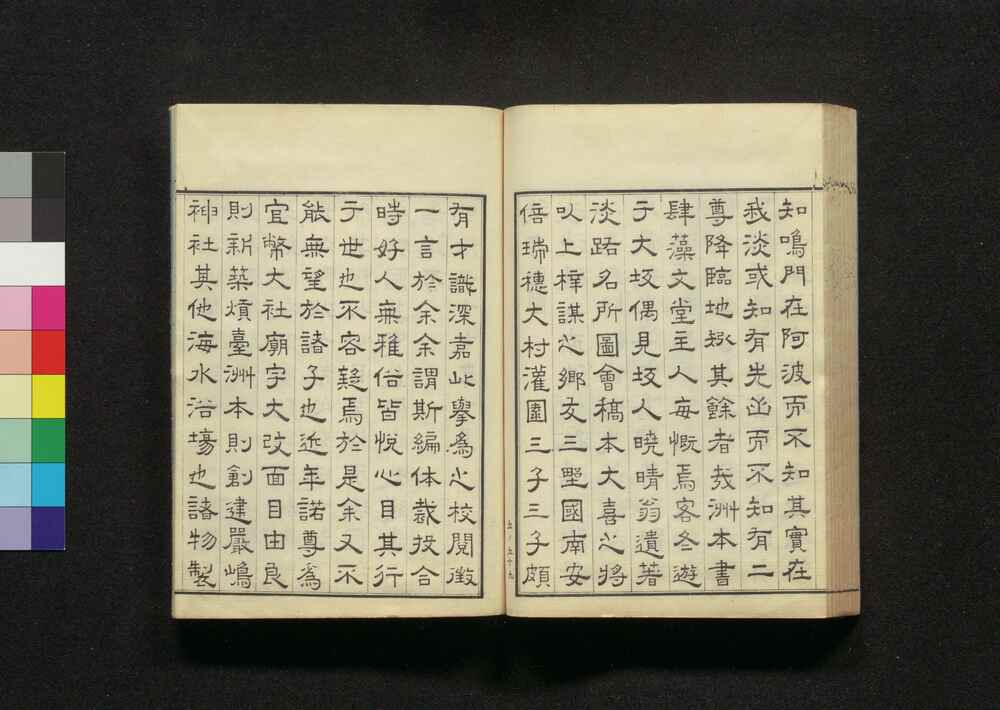 知鳴門在阿波而不知其實在
我淡或知有先山而不知有二
尊降臨地矧其餘者哉洲本書
肆藻文堂主人每慨焉客冬遊
于大坂偶見坂人曉晴翁遺著
淡路名所圖會稿本大喜之將
以上梓謀之鄉友三野國南安
倍瑞穗大村灌園三子三子頗
五ノ五十九
有才識深嘉此擧為之校閱徵
一言於余余謂斯編体裁投合
時好人無雅俗皆悅心目其行
于世也不容疑焉於是余又不
能無望於諸子也近年諾尊為
宜幣大社廟宇大改面目由良
則新築熕臺洲本則創建嚴嶋
神社其他海水浴場也諸物製